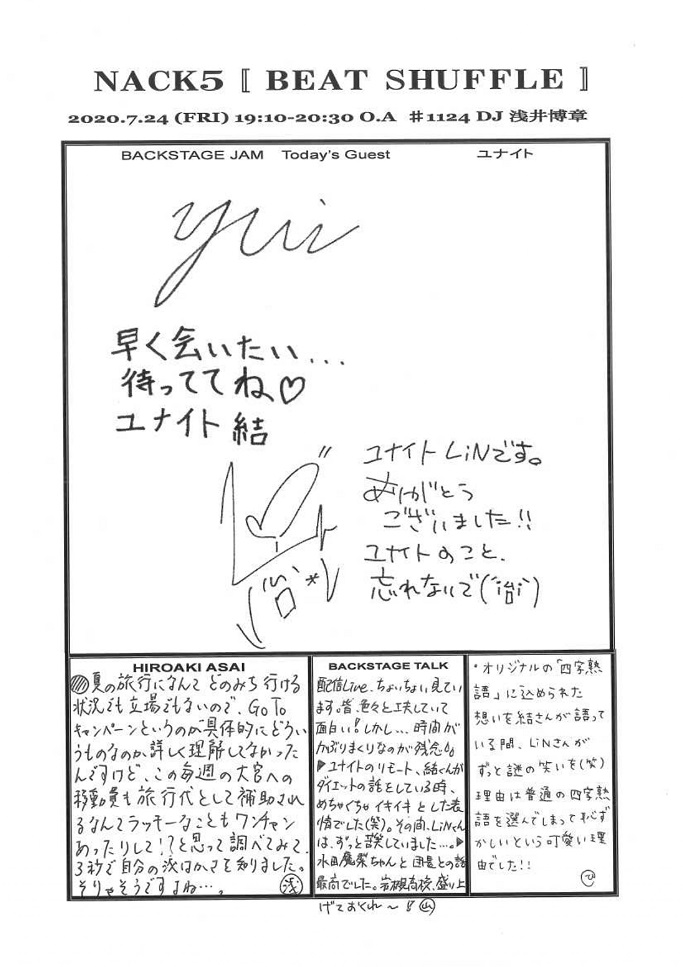 NACK5 〚 BEAT SHUFFLE 〛
2020.7.24 (FRI) 19:10-20:30 O.A ♯1124 DJ 浅井博章
BACKSTAGE JAM Today's Guest ユナイト
yui
早く会いたい...
待っててね♡
ユナイト 結
ユナイト LiNです。
ありがとう
ございました!!
ユナイトのこと、
忘れないで
HIROAKI ASAI
夏の旅行になんて どのみち 行ける
状況でも立場でもないので、GoTo
キャンペーンというのが具体的にどうい
うものなのか詳しく理解してなかった
んですけど、この毎週の大宮への
移動費も旅行代として補助され
るなんてラッキーなこともワンチャン
あったりして!?と思って調べてみて、
3秒で自分の浅はかさを知りました。
そりゃそうですよね…。 浅
BACKSTAGE TALK
配信Live、ちょいちょい見てい
ます。皆、色々と工夫していて
面白い!しかし...、時間が
かぶりまくりなのが残念
▶ユナイトのリモート、結くんが
ダイエットの話をしている時、
めちゃくちゃイキイキとした表
情でした(笑)。その間、LiNくん
は、ずっと談笑していました...。▶
水田魔梨ちゃんと との話
最高でした。岩槻高校、盛り上
げておくれ〜!! 山
・オリジナルの「四字熟
語」に込められた
想いを結さんが語って
いる間、LiNさんが
ずっと謎の笑いを(笑)
理由は普通の四字熟
語を選んでしまって恥ず
かしいという可愛い理
由でした!!
ひ